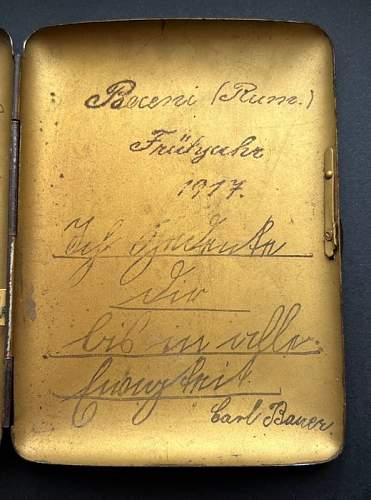 Beceni (Rum.)
Frühjahr
1917.
Ich gedenke
dir
bis in alle
Ewigkeit
Carl Bauer